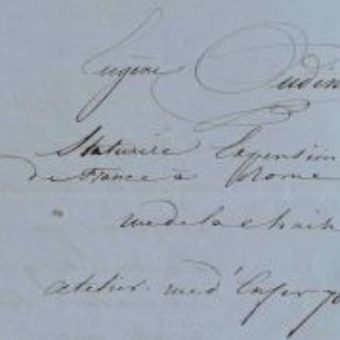 Eugène Oudin
Statuaire Expension
de France a Rome
rue de la chai
atelier. rue d'Enfer 7